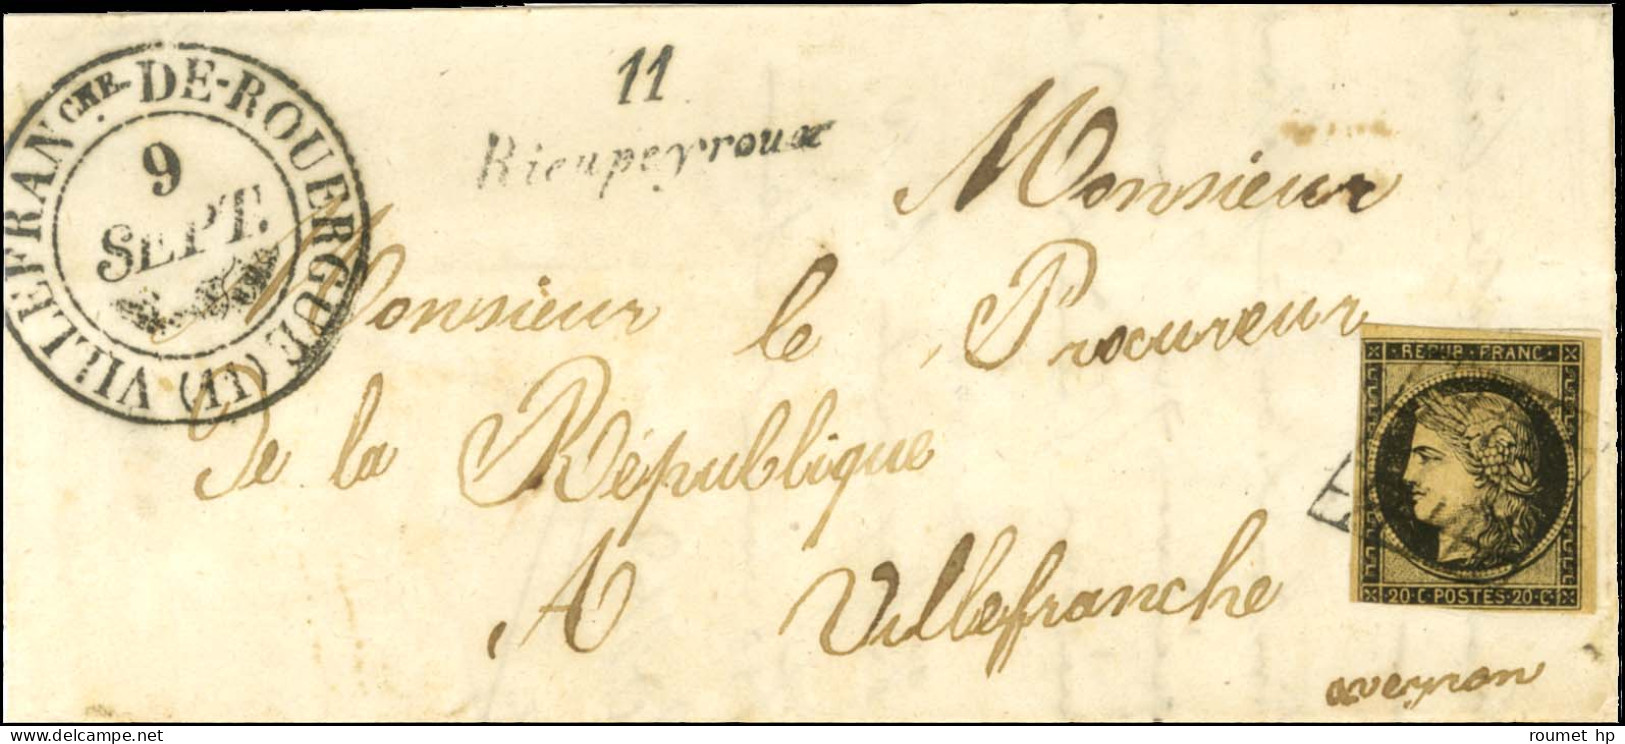 VILLEFRANCHE-DE-ROUERGUE (11)
9
SEPT.
11
Rieupeyroux
Monsieur
Monsieur le Procureur
De la République
A Villefranche
aveyron
REPUB. FRANC.
20.C POSTES.20.C.
roumet hp